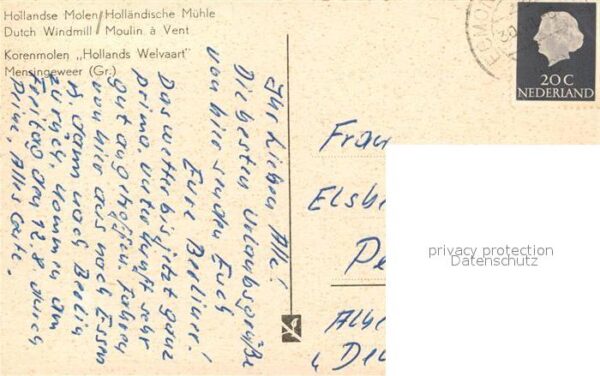 Hollandse Molen/Holländische Mühle
Dutch Windmill/Moulin à Vent
Korenmolen „Hollands Welvaart"
Mensingeweer (Gr.)
Ihr Lieben Alle!
Die besten Urlaubsgrüße
von hier senden Euch
Eure Berliner!
Das Wetter bis jetzt ganz
prima, Unterkunft sehr
gut angetroffen. Fahren
von hier aus nach Essen
u. dann nach Berlin
zurück, kommen am
Freitag den 12.8. durch
Peine, Alles Gute.
EGMOND
20 C
NEDERLAND
Frau
Elsbe
Pe
privacy protection
Datenschutz